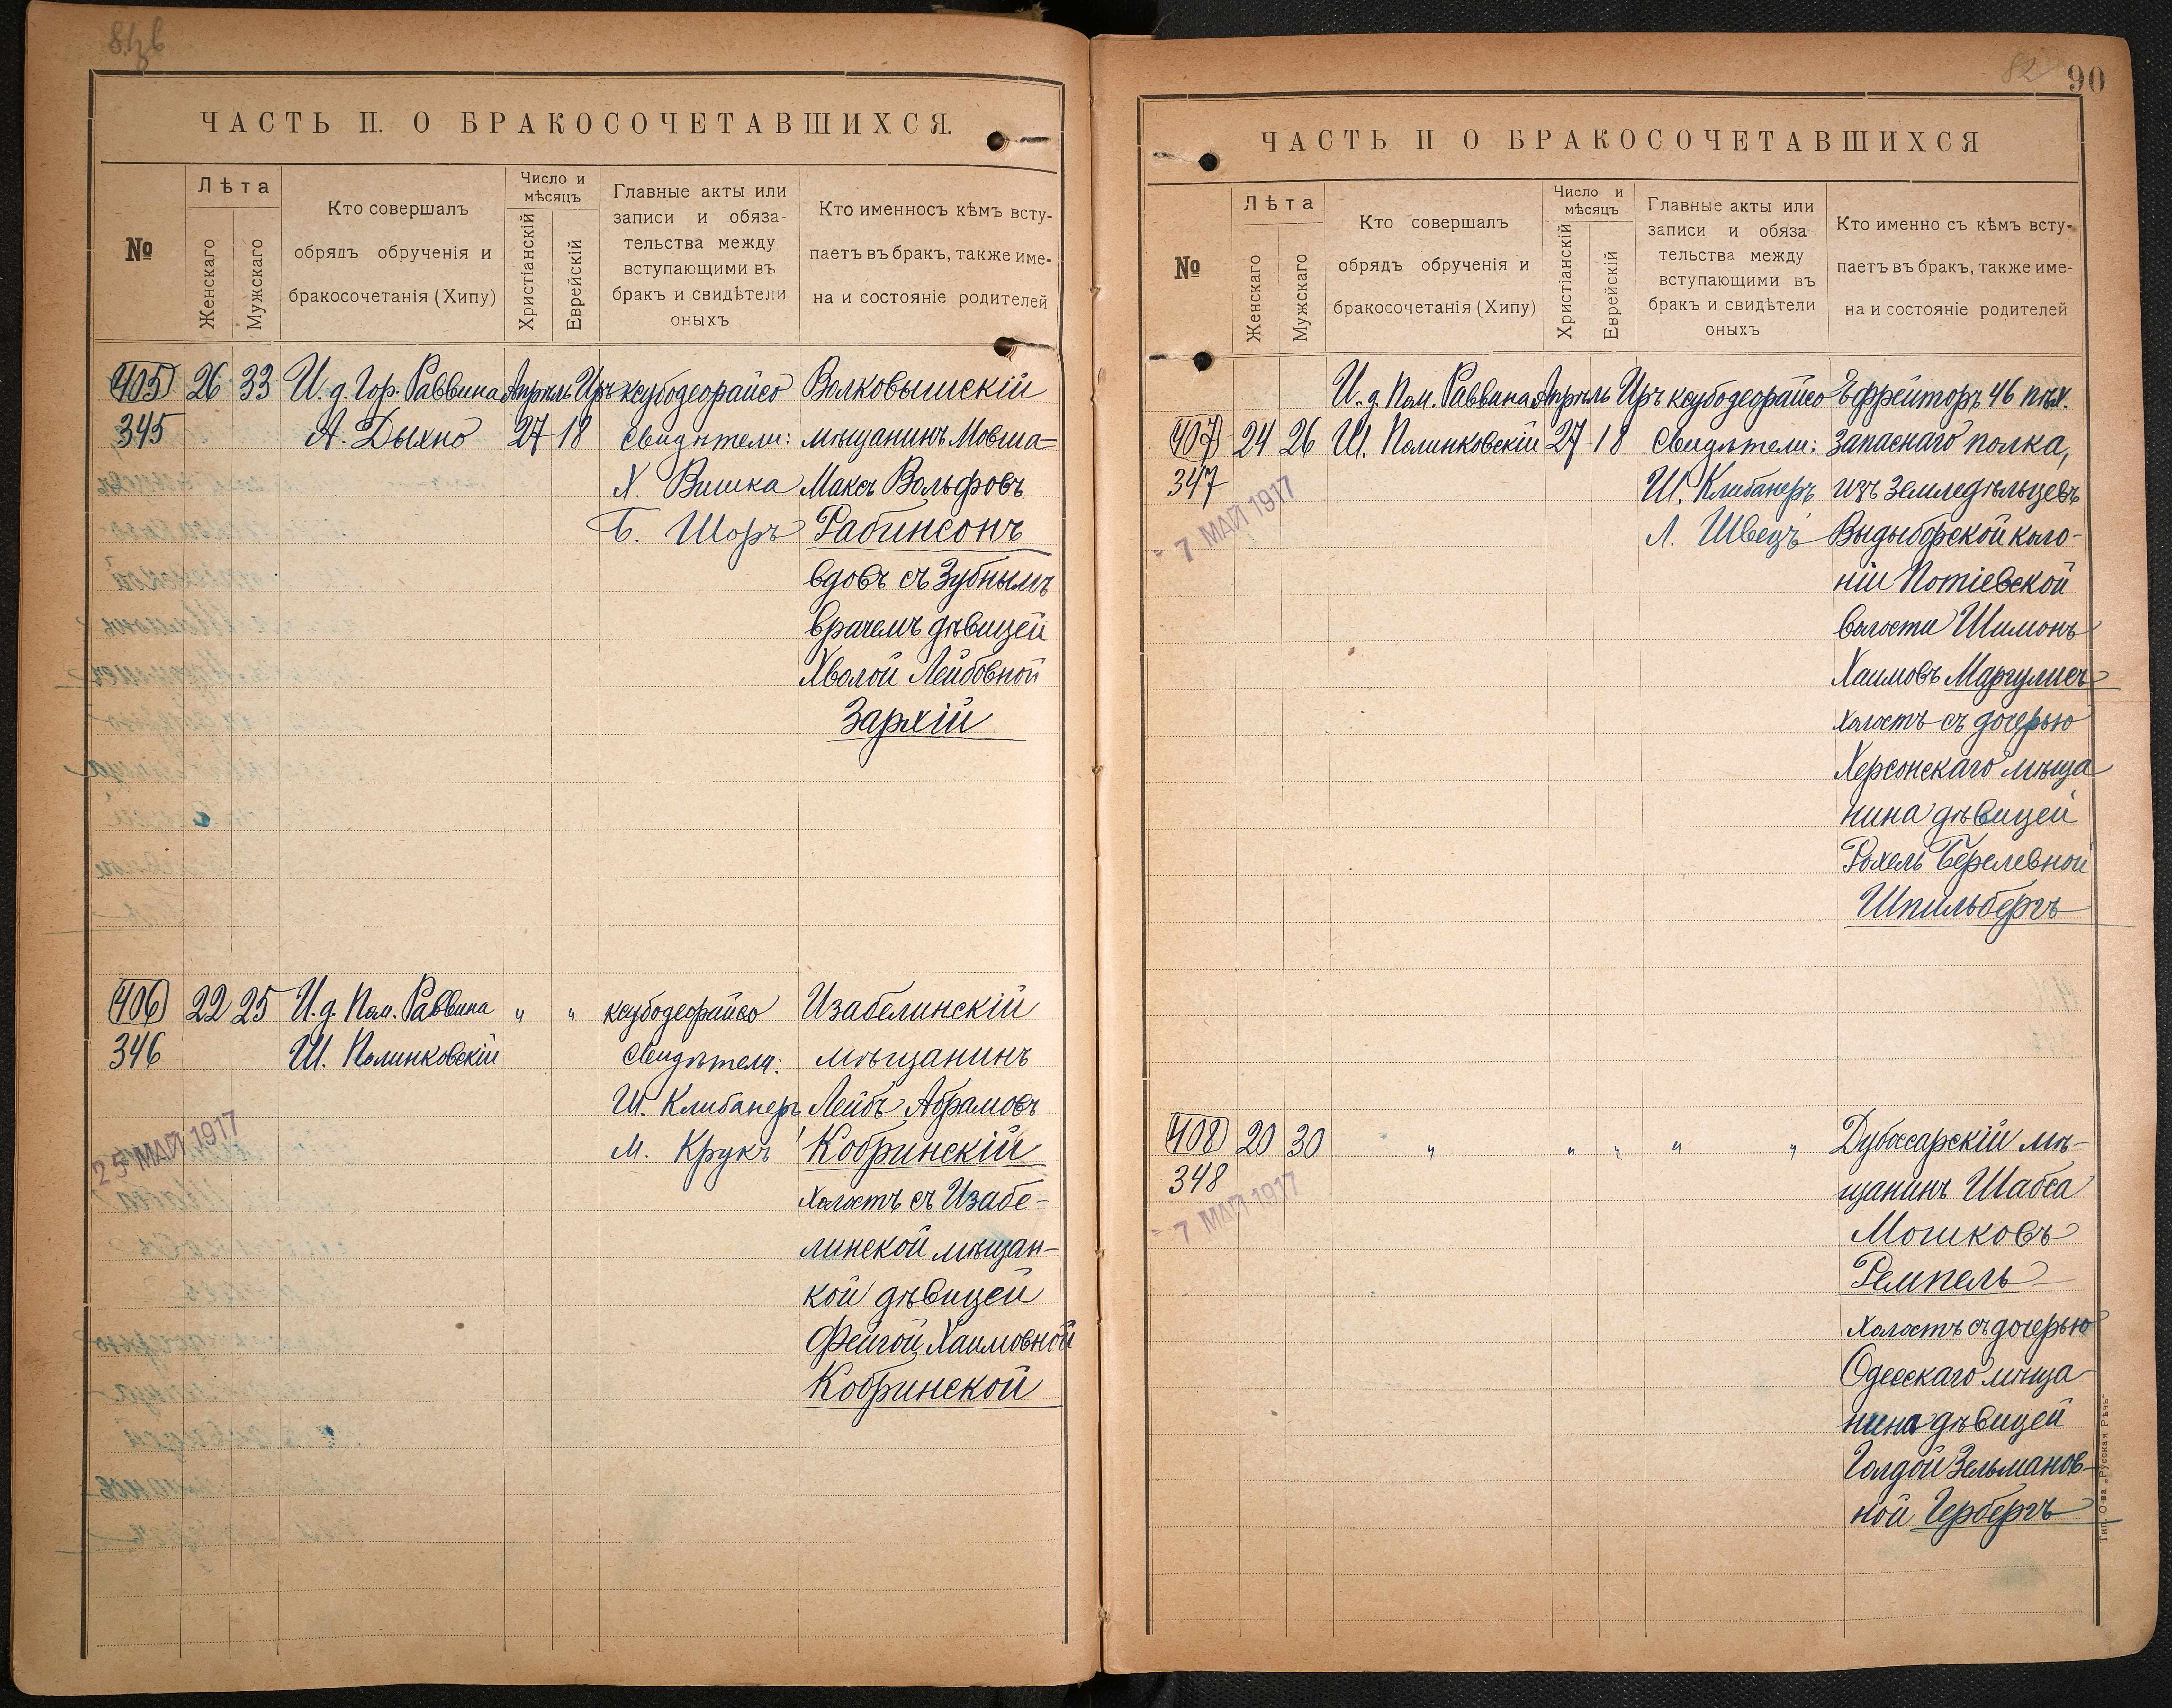 ЧАСТЬ II. О БРАКОСОЧЕТАВШИХСЯ.
№
Лѣта
Женскаго
Мужскаго
Кто совершалъ
обрядъ обрученія и
бракосочетанія (Хипу)
Число и
мѣсяцъ
Христіанскій
Еврейскій
Главные акты или
записи и обяза-
тельства между
вступающими въ
бракъ и свидѣтели
оныхъ
Кто именносъ кѣмъ всту-
паетъ въ бракъ, также име-
на и состояніе родителей
405 26 33 И. д. Гор. Раввина Апрѣль Иръ ксубодеорайсо Волковышскій
345 А. Дыхно 27 18 Свидѣтели: мѣщанинъ Мовша=
Х. Вишка Максъ Вольфовъ
Б. Шоръ Рабинсонъ
вдовъ съ Зубнымъ
врачемъ дѣвицей
Хволой Лейбовной
Зархій
406 22 25 И. д. Пом. Раввина " " ксубодеорайсо Изабелинскій
346 Ш. Полинковскій Свидѣтели: мѣщанинъ
Ш. Клибанеръ Лейбъ Абрамовъ
25 МАЙ 1917
М. Крукъ Кобринскій
холостъ съ Изабе-
линской мѣщан-
кой дѣвицей
Фейгой Хаимовной
Кобринской
82 90
ЧАСТЬ II О БРАКОСОЧЕТАВШИХСЯ
№
Лѣта
Женскаго
Мужскаго
Кто совершалъ
обрядъ обрученія и
бракосочетанія (Хипу)
Число и
мѣсяцъ
Христіанскій
Еврейскій
Главные акты или
записи и обяза
тельства между
вступающими въ
бракъ и свидѣтели
оныхъ
Кто именно съ кѣмъ всту-
паетъ въ бракъ, также име-
на и состояніе родителей
И. д. Пом. Раввина Апрѣль Иръ ксубодеорайсо Ефрейторъ 46 пѣх.
407 24 26 Ш. Полинковскій 27 18 Свидѣтели: запаснаго полка,
347 Ш. Клибанеръ изъ земледѣльцевъ
- 7 МАЙ 1917
Л. Швецъ Выдыборской коло-
ніи Потіевской
волости Шимонъ
Хаимовъ Маргулисъ
холостъ съ дочерью
Херсонскаго мѣща
нина дѣвицей
Рохель Берелевной
Шпильбергъ
408 20 30 " " " " " Дубоссарскій мѣ-
348 щанинъ Шабса
- 7 МАЙ 1917
Мошковъ
Ремпель
холостъ съ дочерью
Одесскаго мѣща
нина дѣвицей
Голдой Зельманов-
ной Герберъ
Тип. О-ва „Русская Рѣчь"